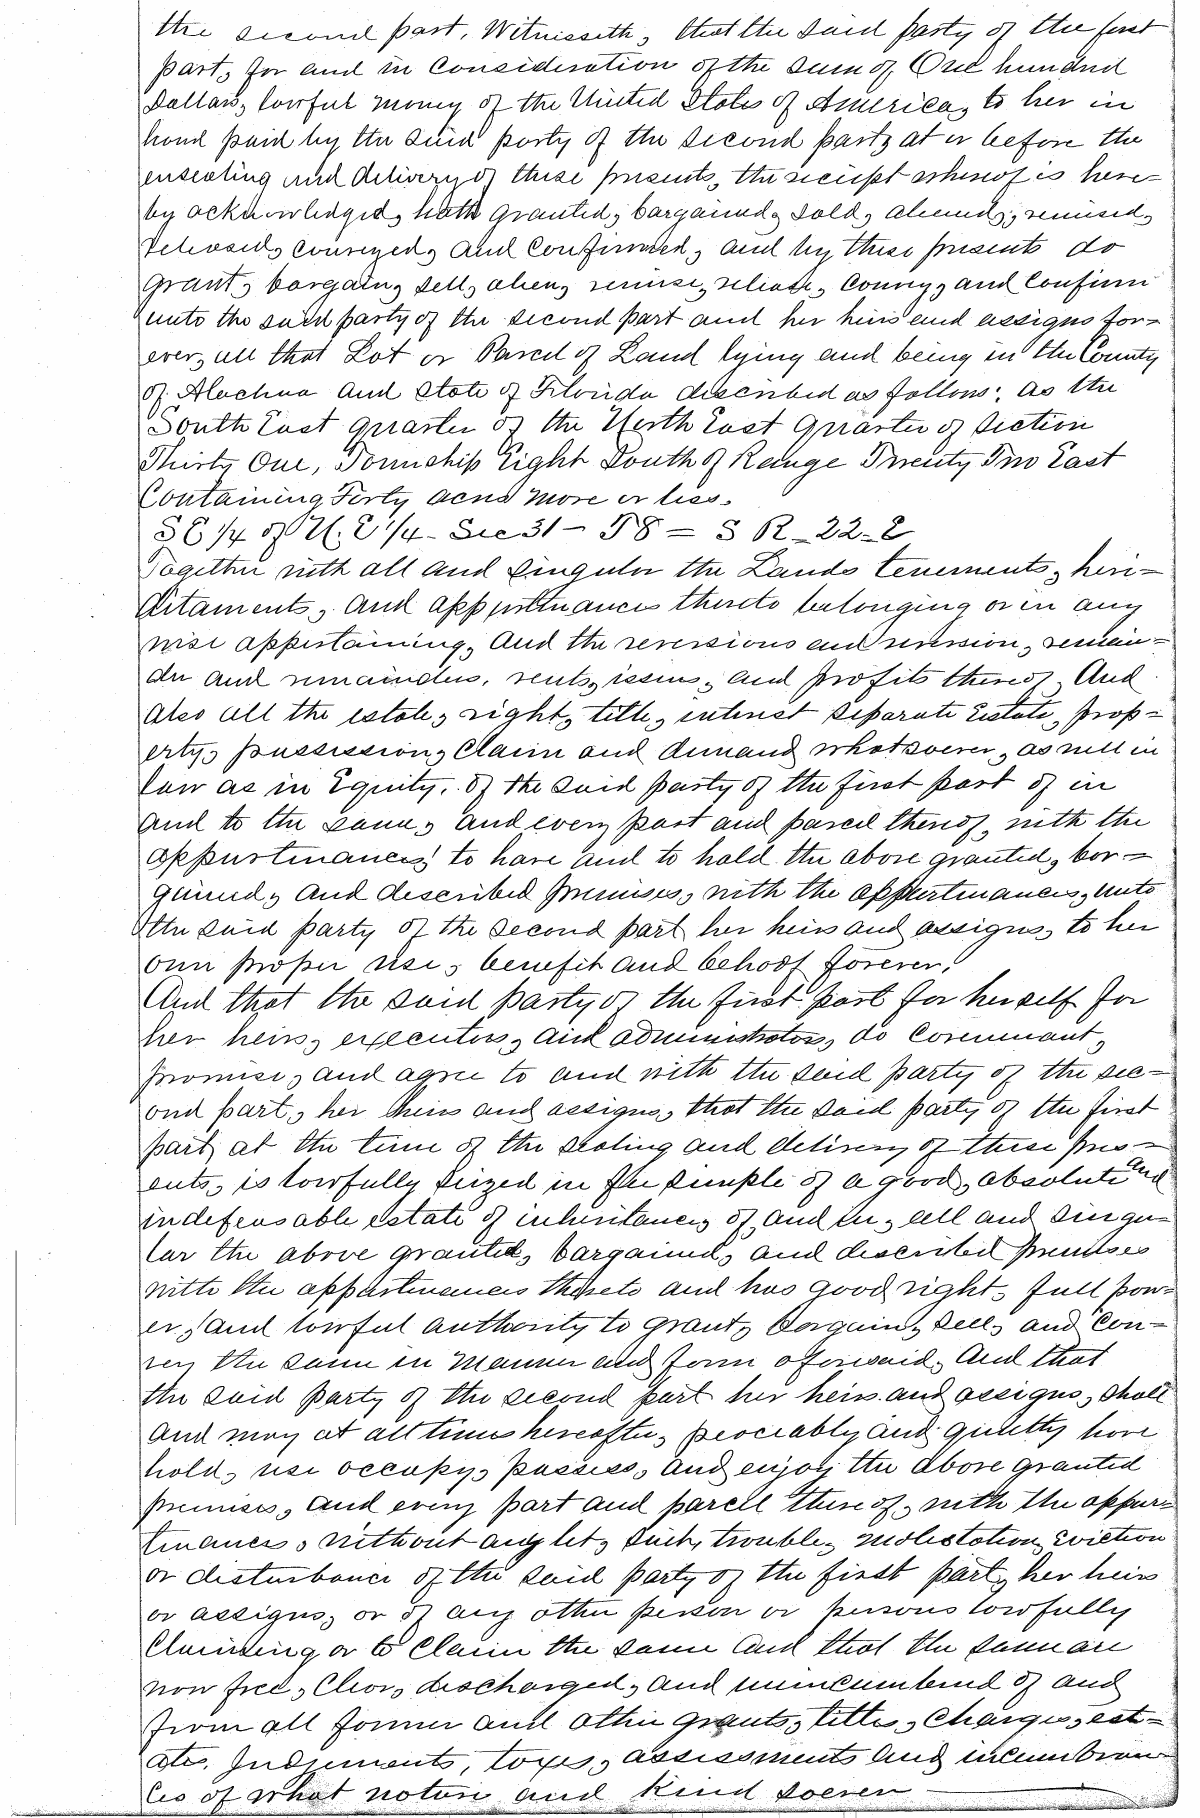 the second part, Witnesseth, that the said party of the first
part, for and in consideration of the sum of One hundred
Dollars, lawful money of the United States of America, to her in
hand paid by the said party of the second part, at or before the
ensealing and delivery of these presents, the receipt whereof is here=
by acknowledged, hath granted, bargained, sold, aliened, remised,
released, conveyed, and confirmed, and by these presents do
grant, bargain, sell, alien, remise, release, convey, and confirm
unto the said party of the second part and her heirs and assigns for=
ever, all that Lot or Parcel of Land lying and being in the County
of Alachua and State of Florida described as follows: as the
South East quarter of the North East Quarter of Section
Thirty One, Township Eight South of Range Twenty Two East
Containing Forty acres more or less.
S E 1/4 of N. E 1/4 - Sec 31 - T 8 = S R - 22 - E
Together with all and singular the Lands tenements, heri=
ditaments, and appurtenances thereto belonging or in any
wise appertaining, and the reversions and reversion, remain=
der and remainders, rents, issues, and profits thereof, And
also all the estate, right, title, interest separate Estate, prop=
erty, possession, Claim and demand whatsoever, as well in
law as in Equity. of the said party of the first part of in
and to the same, and every part and parcel thereof, with the
appurtenances, to have and to hold the above granted, bar=
gained, and described premises, with the appurtenances, unto
the said party of the second part her heirs and assigns, to her
own proper use, benefit and behoof forever.
And that the said party of the first part for herself for
her heirs, executors, and administrators, do covennant,
promise, and agree to and with the said party of the sec=
ond part, her heirs and assigns, that the said party of the first
part at the time of the sealing and delivery of these pres=
ents, is lawfully seized in fee simple of a good, absolute and
indefeasable estate of inheritance, of, and in, all and singu=
lar the above granted, bargained, and described premises
with the appurtenances thereto and has good right, full pow=
er, and lawful authority to grant, bargain, sell, and con=
vey the same in manner and form aforesaid. And that
the said party of the second part her heirs and assigns, shall
and may at all times hereafter, peaceably and quietly have
hold, use occupy, possess, and enjoy the above granted
premises, and every part and parcell thereof, with the appur=
tenances, without any let, suit, trouble, molestation, Eviction
or disturbance of the said party of the first part, her heirs
or assigns, or of any other person or persons lawfully
Claiming or to Claim the same and that the same are
now free, Clear, discharged, and unincumbered of and
from all former and other grants, titles, Charges, est=
ates, Judgements, taxes, assessments and incumbran=
ces of what nature and kind soever